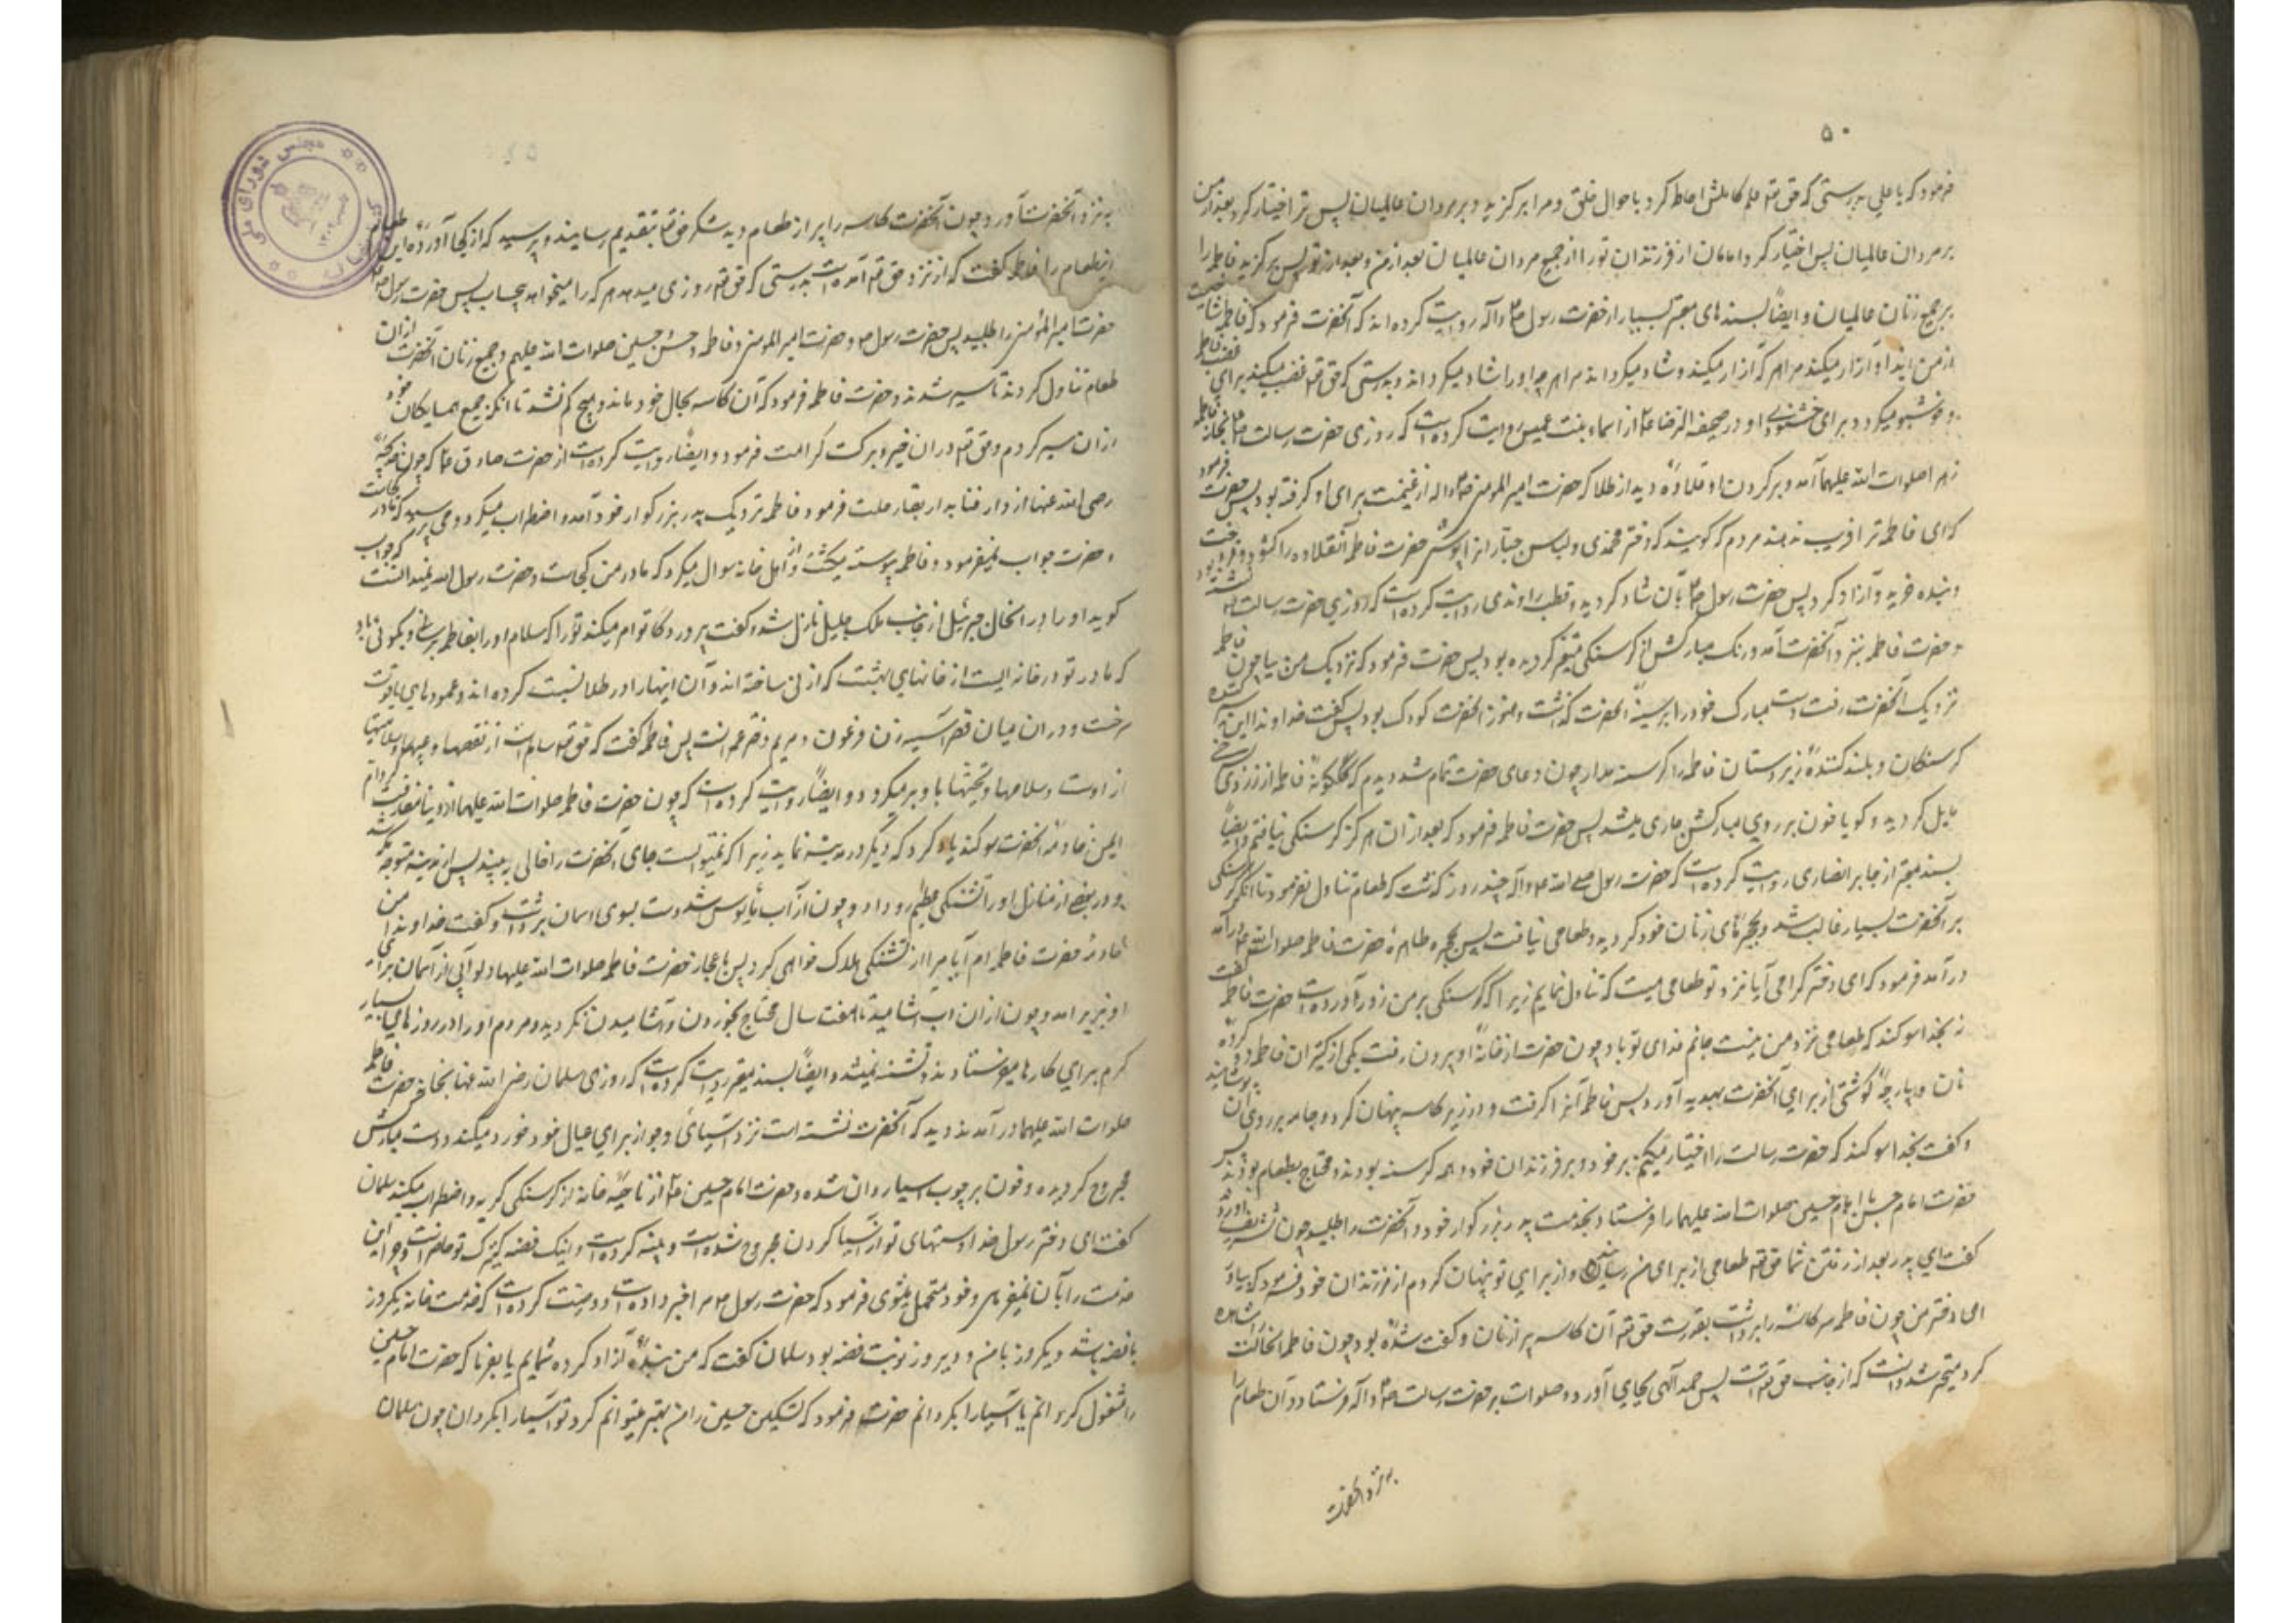 ۵۰
فرمود که یا علی بدرستی که حق تعه علم کاملش احاطه کرد باحوال خلق و مرا برگزید و بر مردان عالمیان پس ترا اختیار کرد بعد از من
بر مردان عالمیان پس اختیار کرد امامان از فرزندان تو را از جمیع مردان عالمیان بعد از من و بعد از تو پس برگزید فاطمه را
بر جمیع زنان عالمیان و ایضاً بسندهای معتبر بسیار از حضرت رسول ص واله روایت کرده اند که آنحضرت فرمود که فاطمه
از من ایذا و آزار میکند مرا هر که آزار میکند و شاد میگرداند مرا هر چه او را شاد میگرداند و بدرستی که حق تعه غضب میکند برای غضب فاطمه
و خوشنود میگردد برای خشنودی او و در صحیفه الرضا ع از اسماء بنت عمیس روایت کرده است که روزی حضرت رسالت ص بخانه فاطمه
زهرا صلوات الله علیهما آمد و بر گردن او قلاده دید از طلا که حضرت امیر المومنین از غنیمت برای او گرفته بود پس حضرت فرمود
که ای فاطمه ترا فریب ندهند مردم که گویند که دختر محمدی و لباس جباران پوشی حضرت فاطمه آنقلاده را گشود و فروخت
و بنده خرید و آزاد کرد پس حضرت رسول ص بآن شاد گردید و قطب راوندی روایت کرده است که روزی حضرت رسالت نشسته بود
و حضرت فاطمه بنزد آنحضرت آمد و رنگ مبارکش از گرسنگی متغیر گردیده بود پس حضرت فرمود که نزدیک من بیا چون فاطمه
نزدیک آنحضرت رفت دست مبارک خود را بر سینه آنحضرت گذاشت و هنوز آنحضرت کودک بود پس گفت خداوندا ای سیر کننده
گرسنگان و بلند کننده زیردستان فاطمه را گرسنه مدار چون دعای حضرت تمام شد دیدم که گلگونه فاطمه از زردی بسرخی
مایل گردید و گویا خون بر روی مبارکش جاری میشد پس حضرت فاطمه فرمود که بعد از آن هرگز گرسنگی نیافتم و ایضاً
بسند معتبر از جابر انصاری روایت کرده است که حضرت رسول صلی الله ع واله چند روز گذشت که طعام تناول نفرمود تا آنکه گرسنگی
بر آنحضرت بسیار غالب شد و بحجرهای زنان خود گردید و طعامی نیافت پس بحجره طاهره حضرت فاطمه صلوات الله ع درآمد
درآمد فرمود که ای دختر گرامی آیا نزد تو طعامی هست که تناول نمایم زیرا که گرسنگی بر من زور آورده است حضرت فاطمه گفت
نه بخدا سوگند که طعامی نزد من نیست جانم فدای تو باد چون حضرت از خانه او بیرون رفت یکی از کنیزان فاطمه دو گرده
نان و پارچه گوشتی از برای آنحضرت بهدیه آورد پس فاطمه آنرا گرفت و در زیر کاسه پنهان کرد و جامه بر روی آن پوشانید
و گفت بخدا سوگند که حضرت رسالت را اختیار میکنم بر خود و بر فرزندان خود و همه گرسنه بودند و محتاج بطعام بودند پس
حضرت امام حسن با امام حسین صلوات الله علیهما را فرستاد بخدمت پدر بزرگوار خود و آنحضرت را طلبید چون تشریف آورد
گفت ای پدر بعد از رفتن شما حق تعه طعامی از برای من رسانید و از برای تو پنهان کردم از فرزندان خود فرمود که بیاور
ای دختر من چون فاطمه سر کاسه را برداشت بقدرت حق تعه آن کاسه پر از نان و گوشت شده بود چون فاطمه آنحالت مشاهده
کرد متحیر شد و دانست که از جانب حق تعه است پس حمد آلهی بجای آورد و صلوات بر حضرت رسالت ص واله فرستاد و آن طعام را
به نزد آنحضرت
به نزد آنحضرت آورد چون آنحضرت کاسه را پر از طعام دید شکر حق تعا بتقدیم رسانید و پرسید که از کجا آورده این طعام
اینطعام را فاطمه گفت که از نزد حق تعه آمده است بدرستی که حق تعه روزی میدهد هر که را میخواهد بیحساب پس حضرت رسول ص
حضرت امیر المؤمنین را طلبید پس حضرت رسول ص و حضرت امیر المومنین و فاطمه و حسن حسین صلوات الله علیهم و جمیع زنان آنحضرت از آن
طعام تناول کردند تا سیر شدند و حضرت فاطمه فرمود که آن کاسه بحال خود ماند و هیچ کم نشد تا آنکه جمیع همسایگان خود
از آن سیر کردم و حق تعه در آن خیر و برکت کرامت فرمود و ایضاً روایت کرده است از حضرت صادق ع که چون خدیجه
رضی الله عنها از دار فنا بدار بقا رحلت فرمود فاطمه نزدیک پدر بزرگوار خود آمد و اضطراب میکرد و می پرسید که مادر کجاست
و حضرت جواب نمیفرمود و فاطمه پیوسته میگشت و از اهل خانه سوال میکرد که مادر من کجاست و حضرت رسول الله نمیدانست که جواب
گوید او را در آنحال جبرئیل از جانب ملک جلیل نازل شد و گفت پروردگار تو امر میکند تو را که سلام او را بفاطمه برسانی و بگوئی باو
که مادر تو در خانه ایست از خانهای بهشت که از نی ساخته اند و آن اینها را در طلا نسبت کرده اند و عمودهای یاقوت
سرخست و در آن میان قصر آسیه زن فرعون و مریم دختر عمرانست پس فاطمه گفت که حق تعه سالم است از نقصها و عیبها و سلامتیها
از اوست و سلامها و تحیتها باو برمیگردد و ایضاً روایت کرده است که چون حضرت فاطمه صلوات الله علیها از دنیا مفارقت کرد ام
ایمن خادمه آنحضرت سوگند یاد کرد که دیگر در مدینه نماند زیرا که نمیتوانست جای آنحضرت را خالی به بیند پس از مدینه متوجه مکه شد
و در بعضی از منازل او را تشنگی عظیم رو داد و چون از آب مأیوس شد دست بسوی اسمان برداشت و گفت خداوندا من
خادمه حضرت فاطمه ام آیا مرا از تشنگی هلاک خواهی کرد پس باعجاز حضرت فاطمه صلوات الله علیها دلو آبی از آسمان برای
او بزیر امد و چون از آن آب آشامید تا هفت سال محتاج بخوردن و آشامیدن نگردید و مردم او را در روزهای بسیار
گرم برای کارها میفرستادند و تشنه نمیشد و ایضاً بسند معتبر روایت کرده است که روزی سلمان رضی الله عنها بخانه حضرت فاطمه
صلوات الله علیهما درآمد دید که آنحضرت نشسته است نزد آسیائی و جو از برای عیال خود خورد میکند و دست مبارکش
مجروح گردیده و خون بر چوب آسیا روان شده و حضرت امام حسین ع از ناحیه خانه از گرسنگی گریه و اضطراب میکند سلمان
گفت ای دختر رسول خدا دستهای تو از آسیا کردن مجروح شده است و پینه کرده است و اینک فضه کنیزک تو حاضر است چرا این
خدمت را بآن نمیفرمائی و خود متحمل میشوی فرمود که حضرت رسول ص مرا خبر داده است و وصیت کرده است که خدمت خانه یکروز
با فضه باشد و یکروز با من و دیروز نوبت فضه بود سلمان گفت که من بنده آزاد کرده شمایم یا بفرما که حضرت امام حسین
را مشغول گردانم یا آسیا را بگردانم حضرت فرمود که تسکین حسین را من بهتر میتوانم کرد تو آسیا را بگردان چون سلمان
مجلس شورای ملی